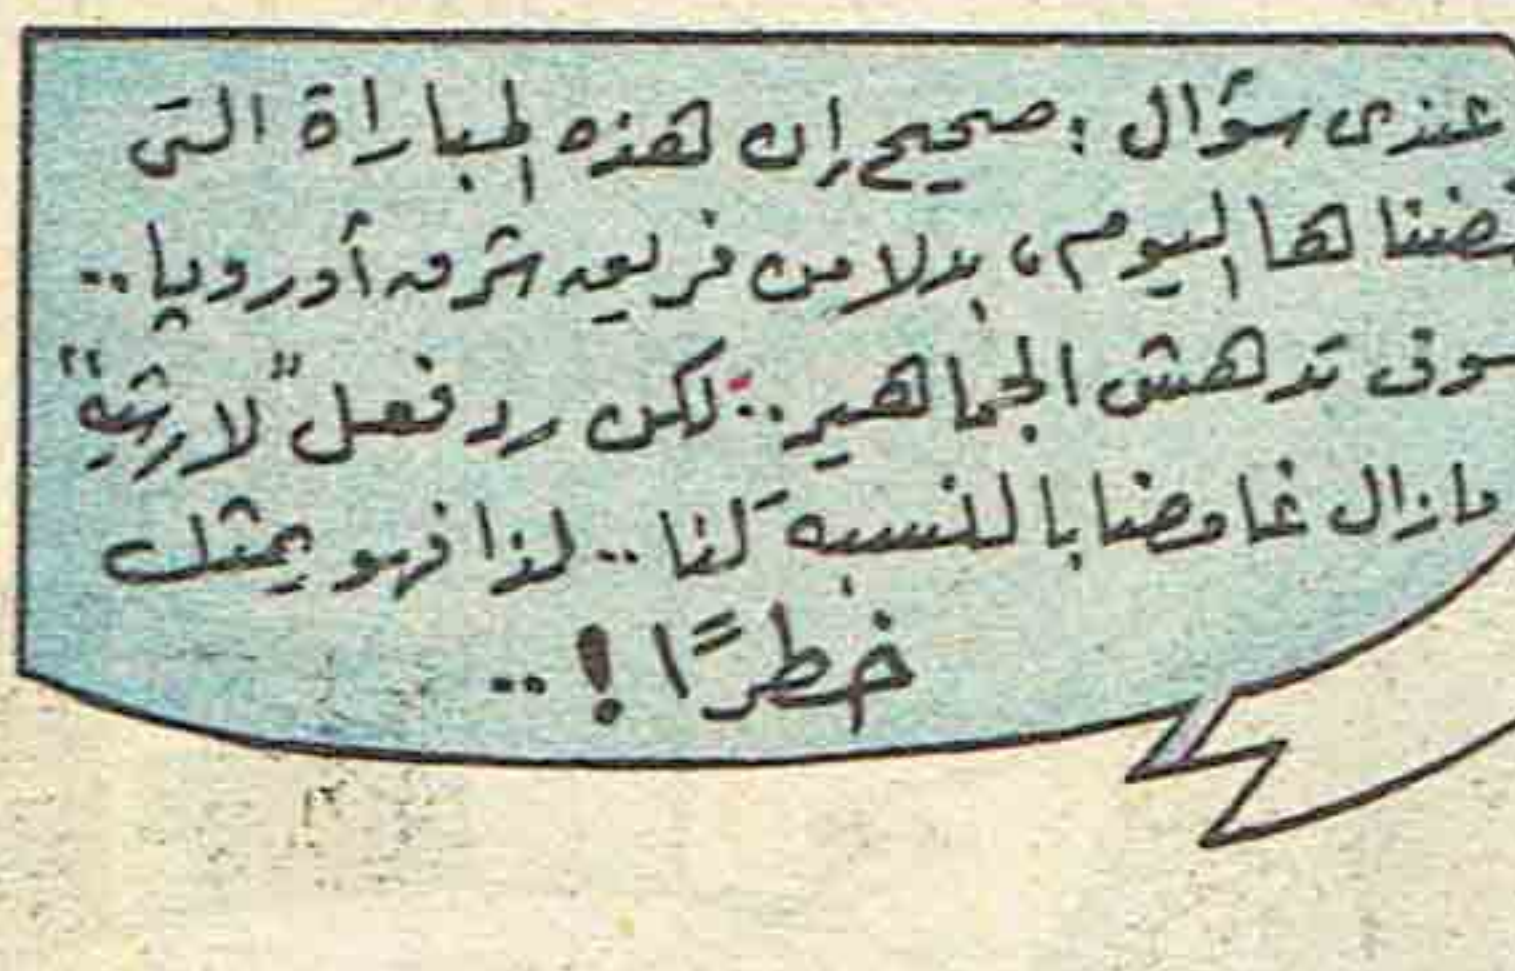 عندى سؤال : صحيح إن هذه المباراة التى
اليوم ، بدلا من فريق شرق أوروبا ..
سوف تدهش الجماهير .. لكن رد فعل "لارشيه"
مازال غامضا بالنسبة لنا .. لذا فهو يمثل
خطرًا ! ..